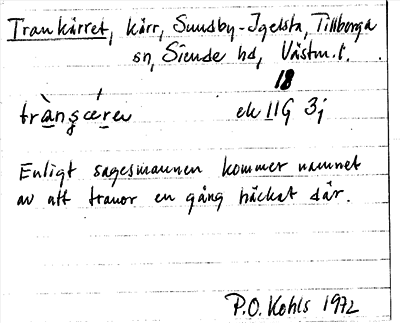 Trankärret, kärr, Sundby-Igelsta, Tillberga
sn, Siende hd, Västm. l.
18
ek 11G 3j
Enligt sagesmannen kommer namnet
av att tranor en gång häckat där.
P.O. Kohls 1972